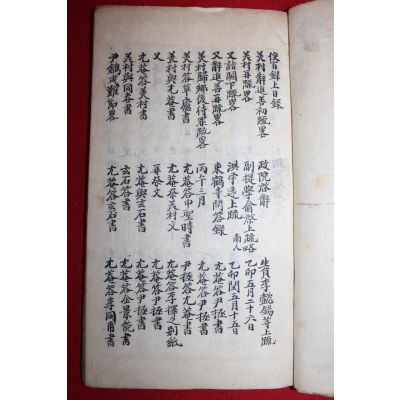 俟百録上目録
美村辭進善初疏畧
美村再疏畧
又詣闕下疏畧
又辭進善再疏畧
美村歸鄕後待罪疏畧
美村答草廬書
美村與尤菴書
尤菴答美村書
又
美村與同春書
尹鑴
政院啓辭
副提學俞棨上疏略
洪宇遠上疏 南人
東鶴寺問答錄
丙午三月
尤菴答甲聖時書
尤菴祭美村文
再祭文
尤菴與玄石書
玄石答書
尤菴答玄石書
生員李懿錫等上疏
乙卯五月二十六日
乙卯閏五月十五日
尤菴答尹拯書
尤菴答尹拯書
尹拯答尤菴書
尤菴答李擇之別紙
尤菴答尹拯書
尤菴答尹拯書
尤菴答金景能書
尤菴答李同甫書